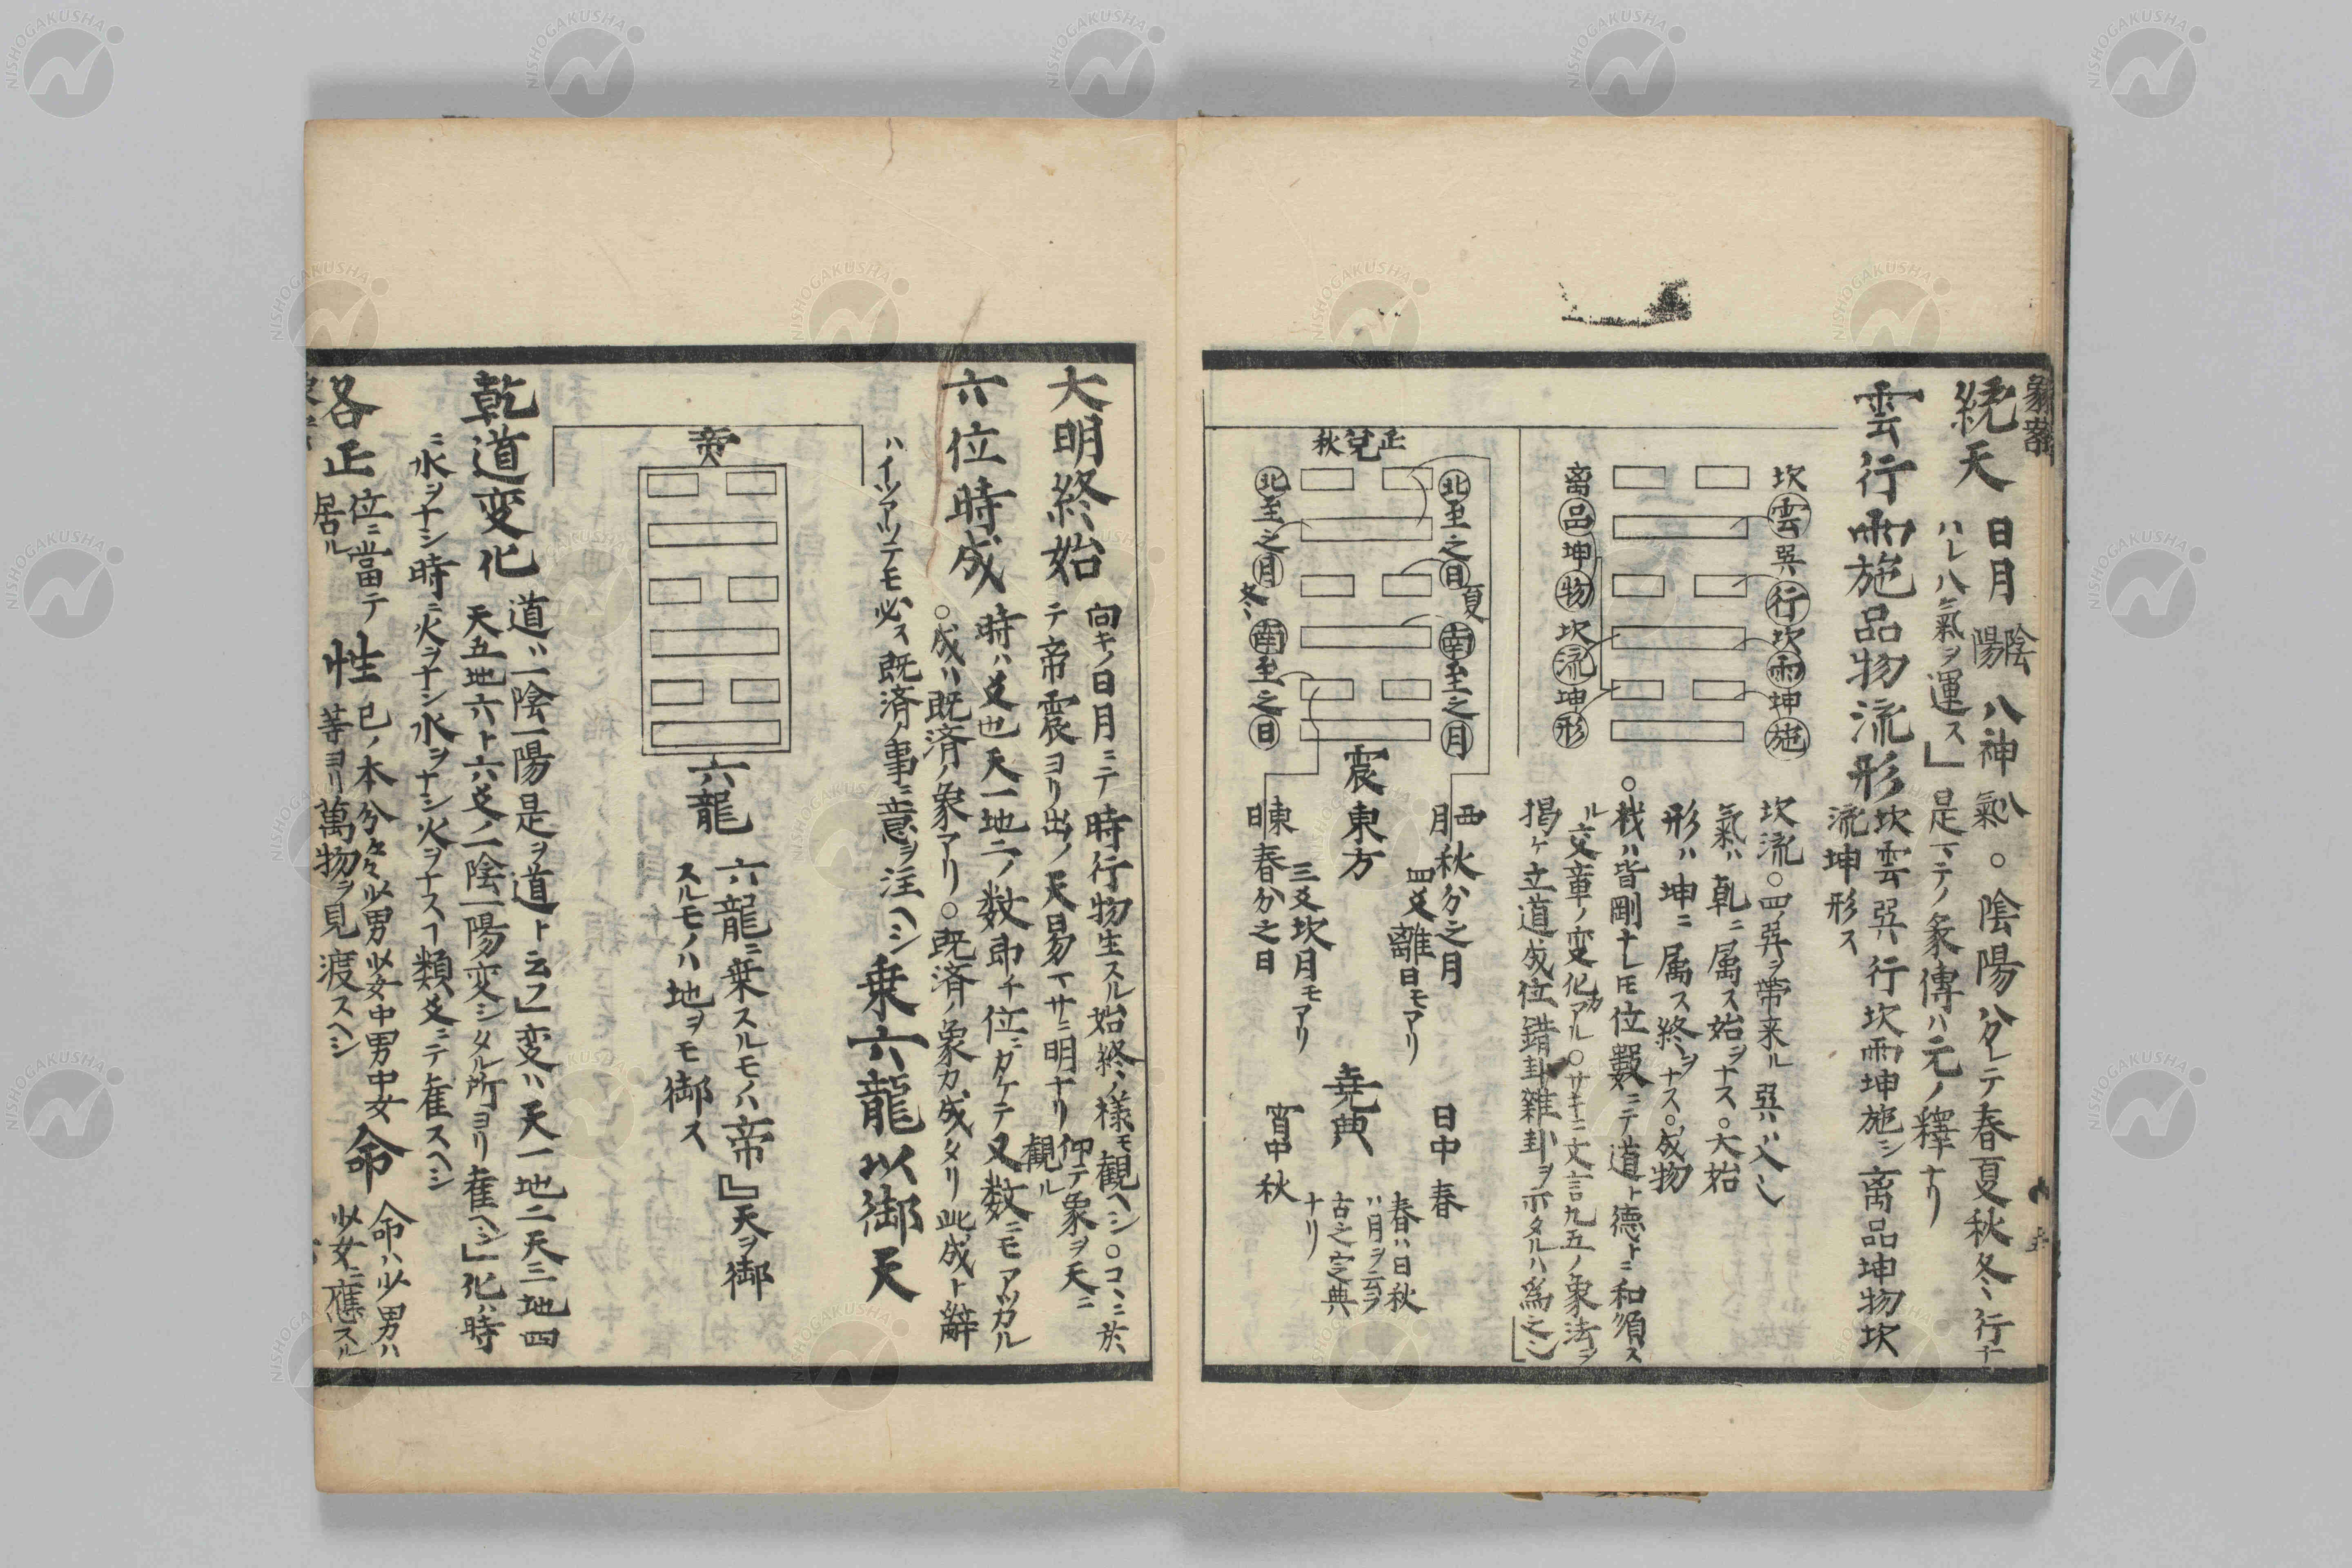 統天 日月 陰陽 八神氣八。陰陽分レテ春夏秋冬ヽ行ナ
ハレ八氣ヲ運ス」是マテノ彖傳ハ元ノ釋ナリ
雲行雨施品物流形 坎雲巽行坎雨坤施シ离品坤物坎
流坤形ス
坎雲巽行坎雨坤施
离品坤物坎流坤形
坎流。四ノ巽ヲ帶来ル巽ハ入シ
氣ハ乾ニ属ス始ヲナス。大始
形ハ坤ニ属ス終ヲナス。成物
ハ皆剛ナレ𪜈位數ニテ道ト德トニ和須ス
ル文章ノ変化カアル。サキニ文言九五ノ象法ヲ
揭ケ立道成位錯卦雜卦ヲ示タルハ為之シ
正兌秋
北至之日 夏 南至之月
北至之月 冬 南至之日
震東方
西月秋分之月
四爻離日モアリ
三爻坎月モアリ
東日春分之日
堯典
日中春
宵中秋
春ハ日秋
ハ月ヲ云フ
古之定典
ナリ
大明終始 向キノ日月ニテ時行物生スル始終ノ様モ観ヘシ。コヽニ於
テ帝震ヨリ出ノ天易マサニ明ナリ 仰テ象ヲ天ニ観ル
六位時成 時ハ爻也天一地二ノ数即チ位ニタケテ又数ニモアツカル
。成ハ既済ノ象アリ。既済ノ象カ成タリ此成ト辭
ハイツアツテモ必ス既済ノ事ニ意ヲ注ヘシ 乗六龍以御天
帝
六龍 六龍ニ乗スルモノハ帝』天ヲ御
スルモノハ地ヲモ御ス
乾道変化 道ハ一陰一陽是ヲ道ト云フ」変ハ天一地二天三地四
天五地六ト六爻ノ一陰一陽変シタル所ヨリ隺ヘシ」化ハ時
ニ水ヲナシ時ニ火ヲナシ水ヲナシ火ヲナスヿ類爻ニテ隺スヘシ
各正 位ニ當テ居ル 性 己ノ本分々々少男少女中男中女等ヨリ萬物ヲ見渡スヘシ 命 命ハ少男ハ少女ニ應スル